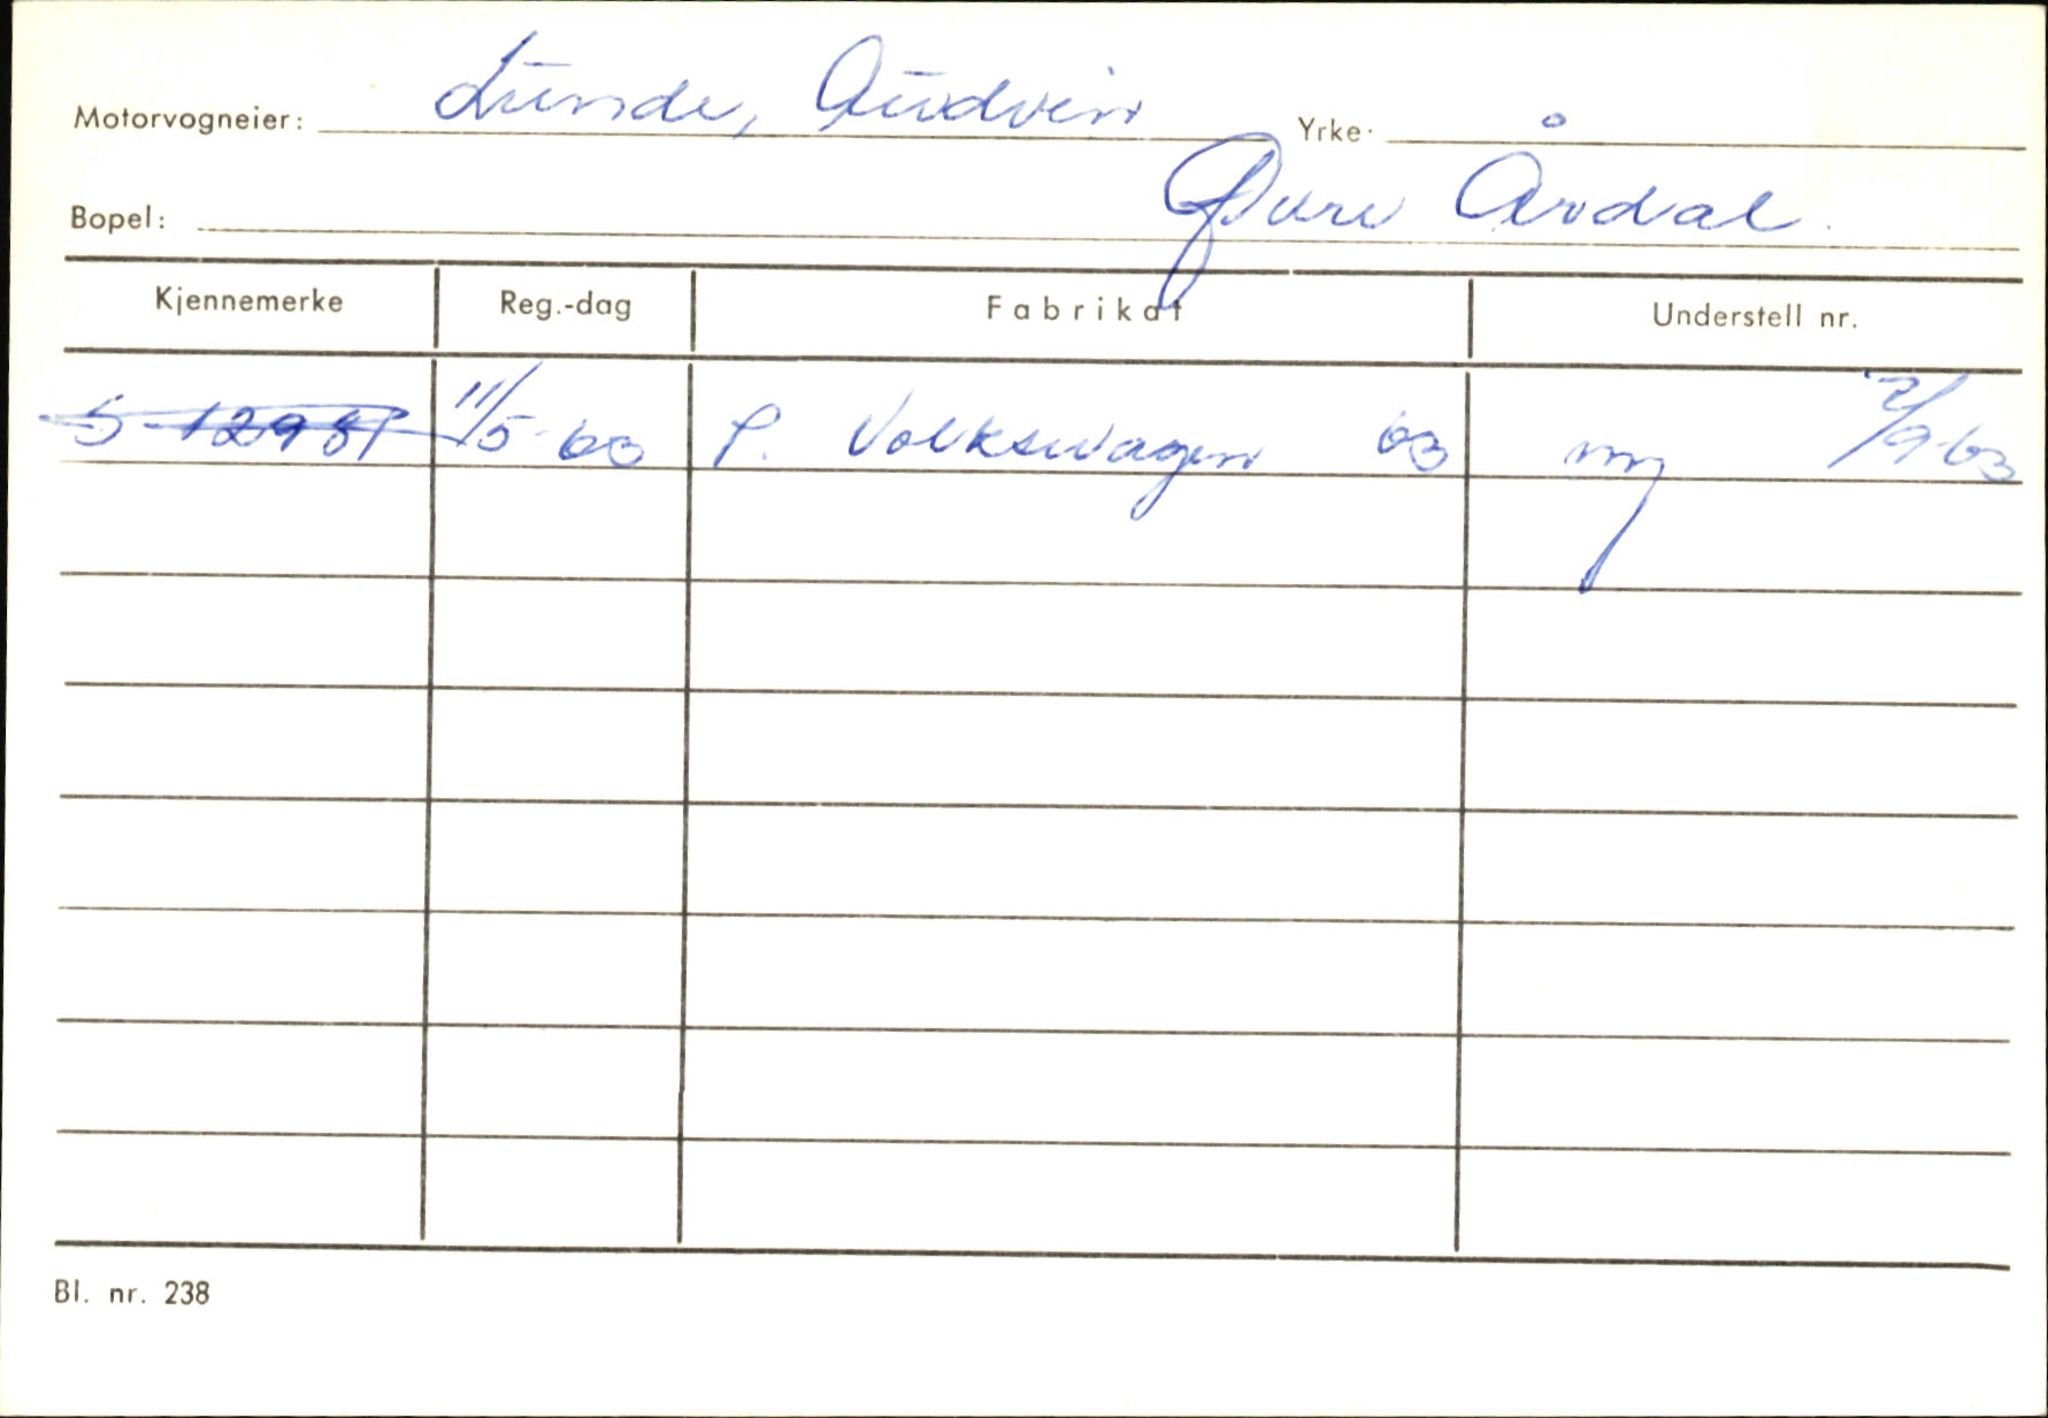 Motorvogneier: Lunde, Audvin Yrke:
Bopel: Øvre Årdal.
Kjennemerke Reg.-dag Fabrikat Understell nr.
S-12981 11/5-63 P. Volkswagen 63 ny 2/9-63
Bl. nr. 238